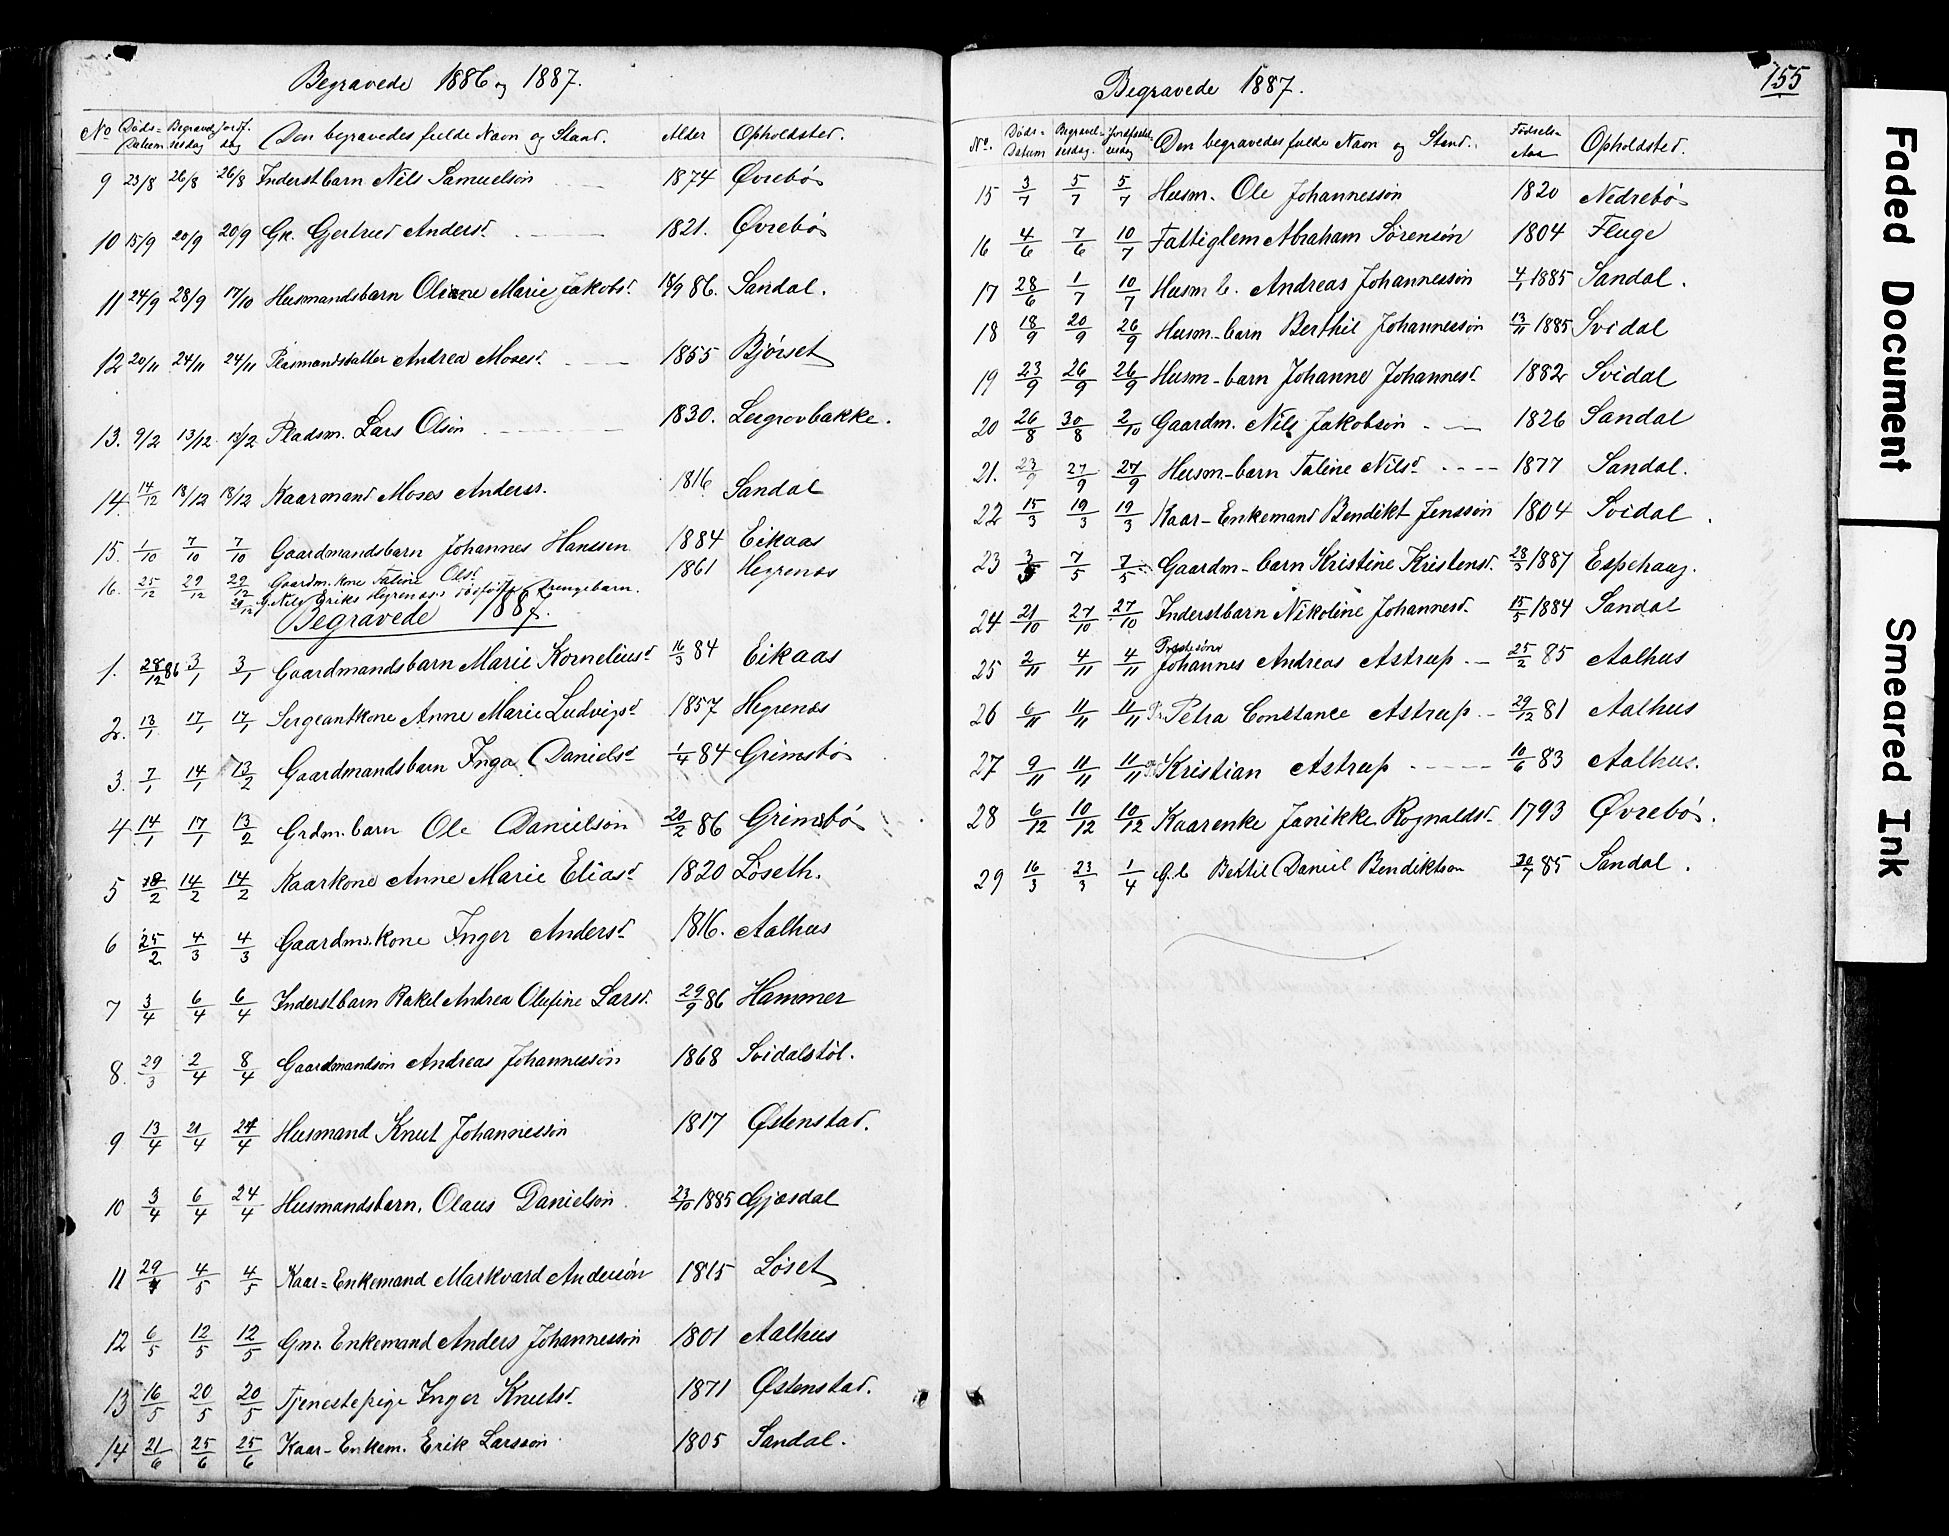 Begravede 1886 og 1887.
No Døds-Datum Begravelsesdag Jordf.dag Den begravedes fulde Navn og Stand. Alder Opholdsted.
9 23/8 26/8 26/8 Inderstbarn Nils Samuelsön 1874 Øvrebø
10 15/9 20/9 20/9 Gk. Gjertrud Andersd. 1821. Øvrebø
11 24/9 28/9 17/10 Husmandsbarn Oliane Marie Jakobsd. 86. Sandal.
12 20/11 24/11 24/11 Andrea Mosesd. 1855 Bjørset
13. 9/12 13/12. 13/12 Pladsm. Lars Olsön 1830. Lergrovbakke.
14 14/12 18/12 18/12 Kaarmand Moses Anderss. 1816 Sandal
15. 1/10 7/10 7/10 Gaardmandsbarn Johannes Hanssen 1884 Eikaas
16. 25/12 29/12 29/12 Gaardm.kone Taline Olsd. 1861 Hegrenæs
29/12 G. Nils Eriks. Hegrenæs's dødfødte drengebarn.
Begravede 1887.
1. 28/12 86 3/1 3/1 Gaardmandsbarn Marie Korneliusd. 16/3 84 Eikaas
2. 13/1 17/1 17/1 Sergeantkone Anne Marie Ludvigsd. 1857 Hegrenæs
3. 7/1 14/1 13/2 Gaardmandsbarn Inga Danielsd. 1/4 84 Grimsbø
4 14/1 17/1 13/2 Grdm.barn Ole Danielsön 20/2 86 Grimsbø
5 10/2 14/2 14/2 Kaarkone Anne Marie Eliasd. 1820 Løseth.
6 25/2 4/3 4/3 Gaardms.kone Inger Andersd. 1816. Aalhus
7 3/4 6/4 6/4 Inderstbarn Rakel Andrea Olefine Larsd. 29/9 86 Hammer
8. 29/3 2/4 8/4 Gaardmandsön Andreas Johannessön 1868 Svidalstøl.
9 13/4 21/4 24/4 Husmand Knut Johannessön 1817 Østenstad.
10 3/4 6/4 24/4 Husmandsbarn, Olaus Danielsön. 23/10 1885 Gjæsdal
11 29/4 4/5 4/5 Kaar-Enkemand Markvard Andersön 1815 Løset
12 6/5 12/5 12/5 Gm. Enkemand Anders Johannessön 1801 Aalhus
13 16/5 20/5 20/5 Tjenestepige Inger Knutsd. 1871 Østenstad.
14 21/6 25/6 25/6 Kaar-Enkem. Erik Larssön 1805 Sandal.
Begravede 1887.
155
No. Døds-Datum Begravelsesdag. Jordfæstelsesdag Den begravedes fulde Navn og Stand. Fødsels-Aar Opholdsted.
15 3/7 5/7 5/7 Husm. Ole Johannessön 1820 Nedrebø
16 4/6 7/6 10/7 Fattiglem Abraham Sörensön 1804 Fluge
17 28/6 1/7 10/7 Husm b. Andreas Johannessön 4/1 1885 Sandal.
18 18/9 20/9 26/9 Husm-barn Berthil Johannessön 13/11 1885 Svidal
19 23/9 26/9 26/9 Husm-barn Johanne Johannesd. 1882 Svidal
20 26/8 30/8 2/10 Gaardm. Nils Jakobsön 1826 Sandal
21. 23/9 27/9 27/9 Husm-barn Taline Nilsd. 1877 Sandal.
22 15/3 19/3 19/3 Kaar-Enkemand Bendikt Jenssön 1804 Svidal.
23 3/5 7/5 7/5 Gaardm-barn Kristine Kristensd. 28/3 1887 Espehaug.
24 21/10 27/10 27/10 Inderstbarn Nikoline Johannesd. 15/5 1884 Sandal
25 2/11 4/11 4/11 Præstesön Johannes Andreas Astrup. 25/2 85 Aalhus
26 6/11 11/11 11/11 Petra Constance Astrup. 29/12 81 Aalhus
27 9/11 11/11 11/11 Kristian Astrup 10/6 83 Aalhus.
28 6/12 10/12 10/12 Kaarenke Janikke Rognaldsd. 1793 Øvrebø.
29 16/3 23/3 1/4 G.b Bertil Daniel Bendiktson 30/7 85 Sandal.
Faded Document
Smeared Ink